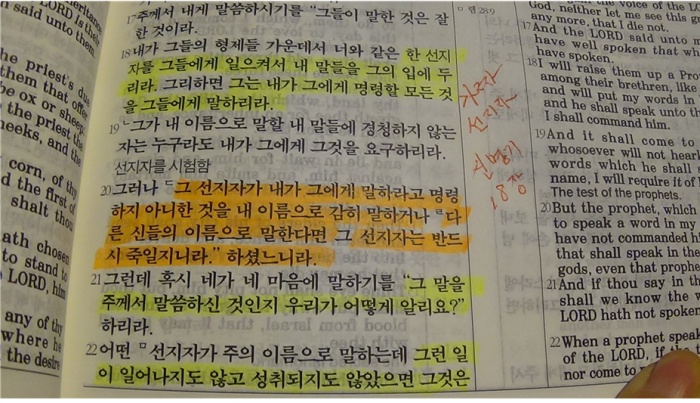 heritance
LORD is their
said unto them.
he priest's due
them that offer
be ox or sheep
o the priest the
heeks, and the
corn, of thy
d the first of
shalt thou
ath chosen
to stand to
LORD, him
any of thy
where he
the desire
17주께서 내게 말씀하시기를 “그들이 말한 것은 잘
한 것이라.
18내가 그들의 형제들 가운데서 너와 같은 한 선지
자를 그들에게 일으켜서 내 말들을 그의 입에 두
리라. 그리하면 그는 내가 그에게 명령할 모든 것
을 그들에게 말하리라.
19 ㄴ그가 내 이름으로 말할 내 말들에 경청하지 않는
자는 누구라도 내가 그에게 그것을 요구하리라.
선지자를 시험함
20그러나 ㄷ그 선지자가 내가 그에게 말하라고 명령
하지 아니한 것을 내 이름으로 감히 말하거나 ㄹ다
른 신들의 이름으로 말한다면 그 선지자는 반드
시 죽일지니라.” 하셨느니라.
21 그런데 혹시 네가 네 마음에 말하기를 “그 말을
주께서 말씀하신 것인지 우리가 어떻게 알리요?”
하리라.
22어떤 ㅁ선지자가 주의 이름으로 말하는데 그런 일
이 일어나지도 않고 성취되지도 않았으면 그것은
렘 28:9
가짜
선지자
신명기
18장
the voice of the LORD
God, neither let me see this
any more, that I die not.
17And the LORD said unto m
have well spoken that wh
have spoken.
18I will raise them up a Pro
among their brethren, like
and will put my words in
and he shall speak unto th
I shall command him.
19And it shall come to
whosoever will not hear
words which he shall
name, I will require it of h
The test of the prophets.
20But the prophet, which
to speak a word in my
have not commanded h
that shall speak in the
gods, even that prophe
21And if thou say in th
shall we know the w
LORD hath not spoken
22When a prophet speak
of the LORD, if the
nor come to